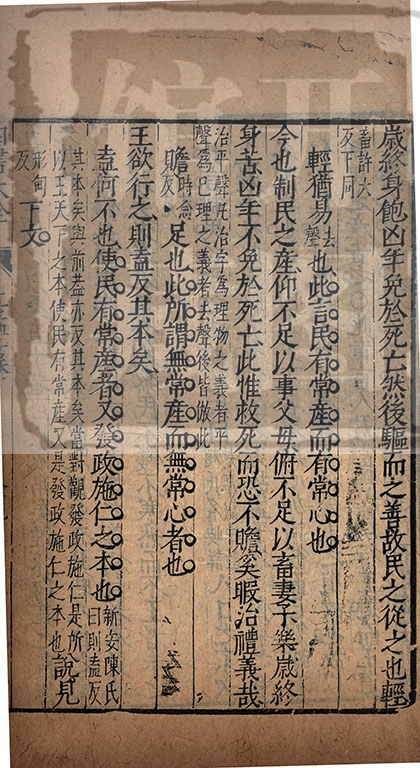 歲終身飽凶年免於死亡然後驅而之善故民之從之也輕
畜許六
反下同
輕猶易去
聲也此言民有常産而有常心也
今也制民之産仰不足以事父母俯不足以畜妻子樂歲終
身苦凶年不免於死亡此惟救死而恐不贍奚暇治禮義哉
治平聲凡治字爲理物之義者平
聲爲已理之義者去聲後皆倣此
贍時念
反足也此所謂無常産而無常心者也
王欲行之則盍反其本矣
盍何不也使民有常産者又發政施仁之本也新安陳氏
曰則盍反
其本矣與前蓋亦反其本矣當對觀發政施仁是所
以王天下之本使民有常産又是發政施仁之本也說見
形甸
反下文